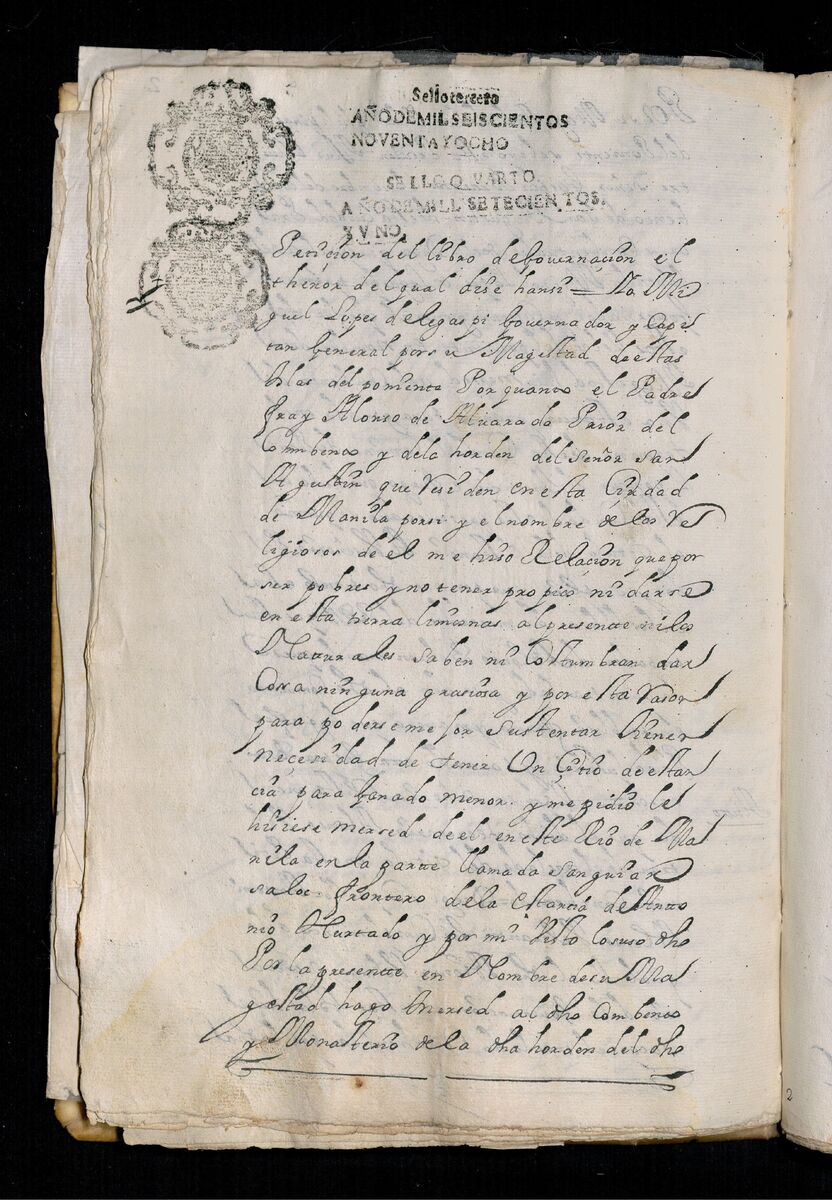 Sello tercero
AÑO DE MIL SEISCIENTOS
NOVENTA Y OCHO
SELLO QVARTO
AÑO DE MILL SETECIENTOS,
Y VNO.
Peticion del libro de Governacion el
thenor del qual dise hansi = Yo Mi
guel Lopes de legaspi Governador y Capi
tan General por su Magestad de estas
Yslas del poniente Por quanto el Padre
fray Alonso de Alvarado Prior del
Combento y de la horden del Señor San
Agustin que Resiuden en esta Ciudad
de Manila por si y el nombre de los Re
ligiosos de el me hiso Relacion que por
ser pobres y no tener propios ni darse
en esta tierra limosnas al presente ni los
Naturales saben ni Costumbran dar
Cosa ninguna grasiosa y por esta Rason
para poderse mejor sustentar thener
necesidad de tener Un Citio de estan
cia para ganado menor. y me pidio le
hisiese mersed de el en este Rio de Ma
nila en la parte llamada
frontero de la estancia de Anto
nio Hurtado y por mi Visto lo suso dho
Por la presente en Nombre de su Ma
gestad hago mersed al dho Combento
y Monasterio de la dha horden del dho
2